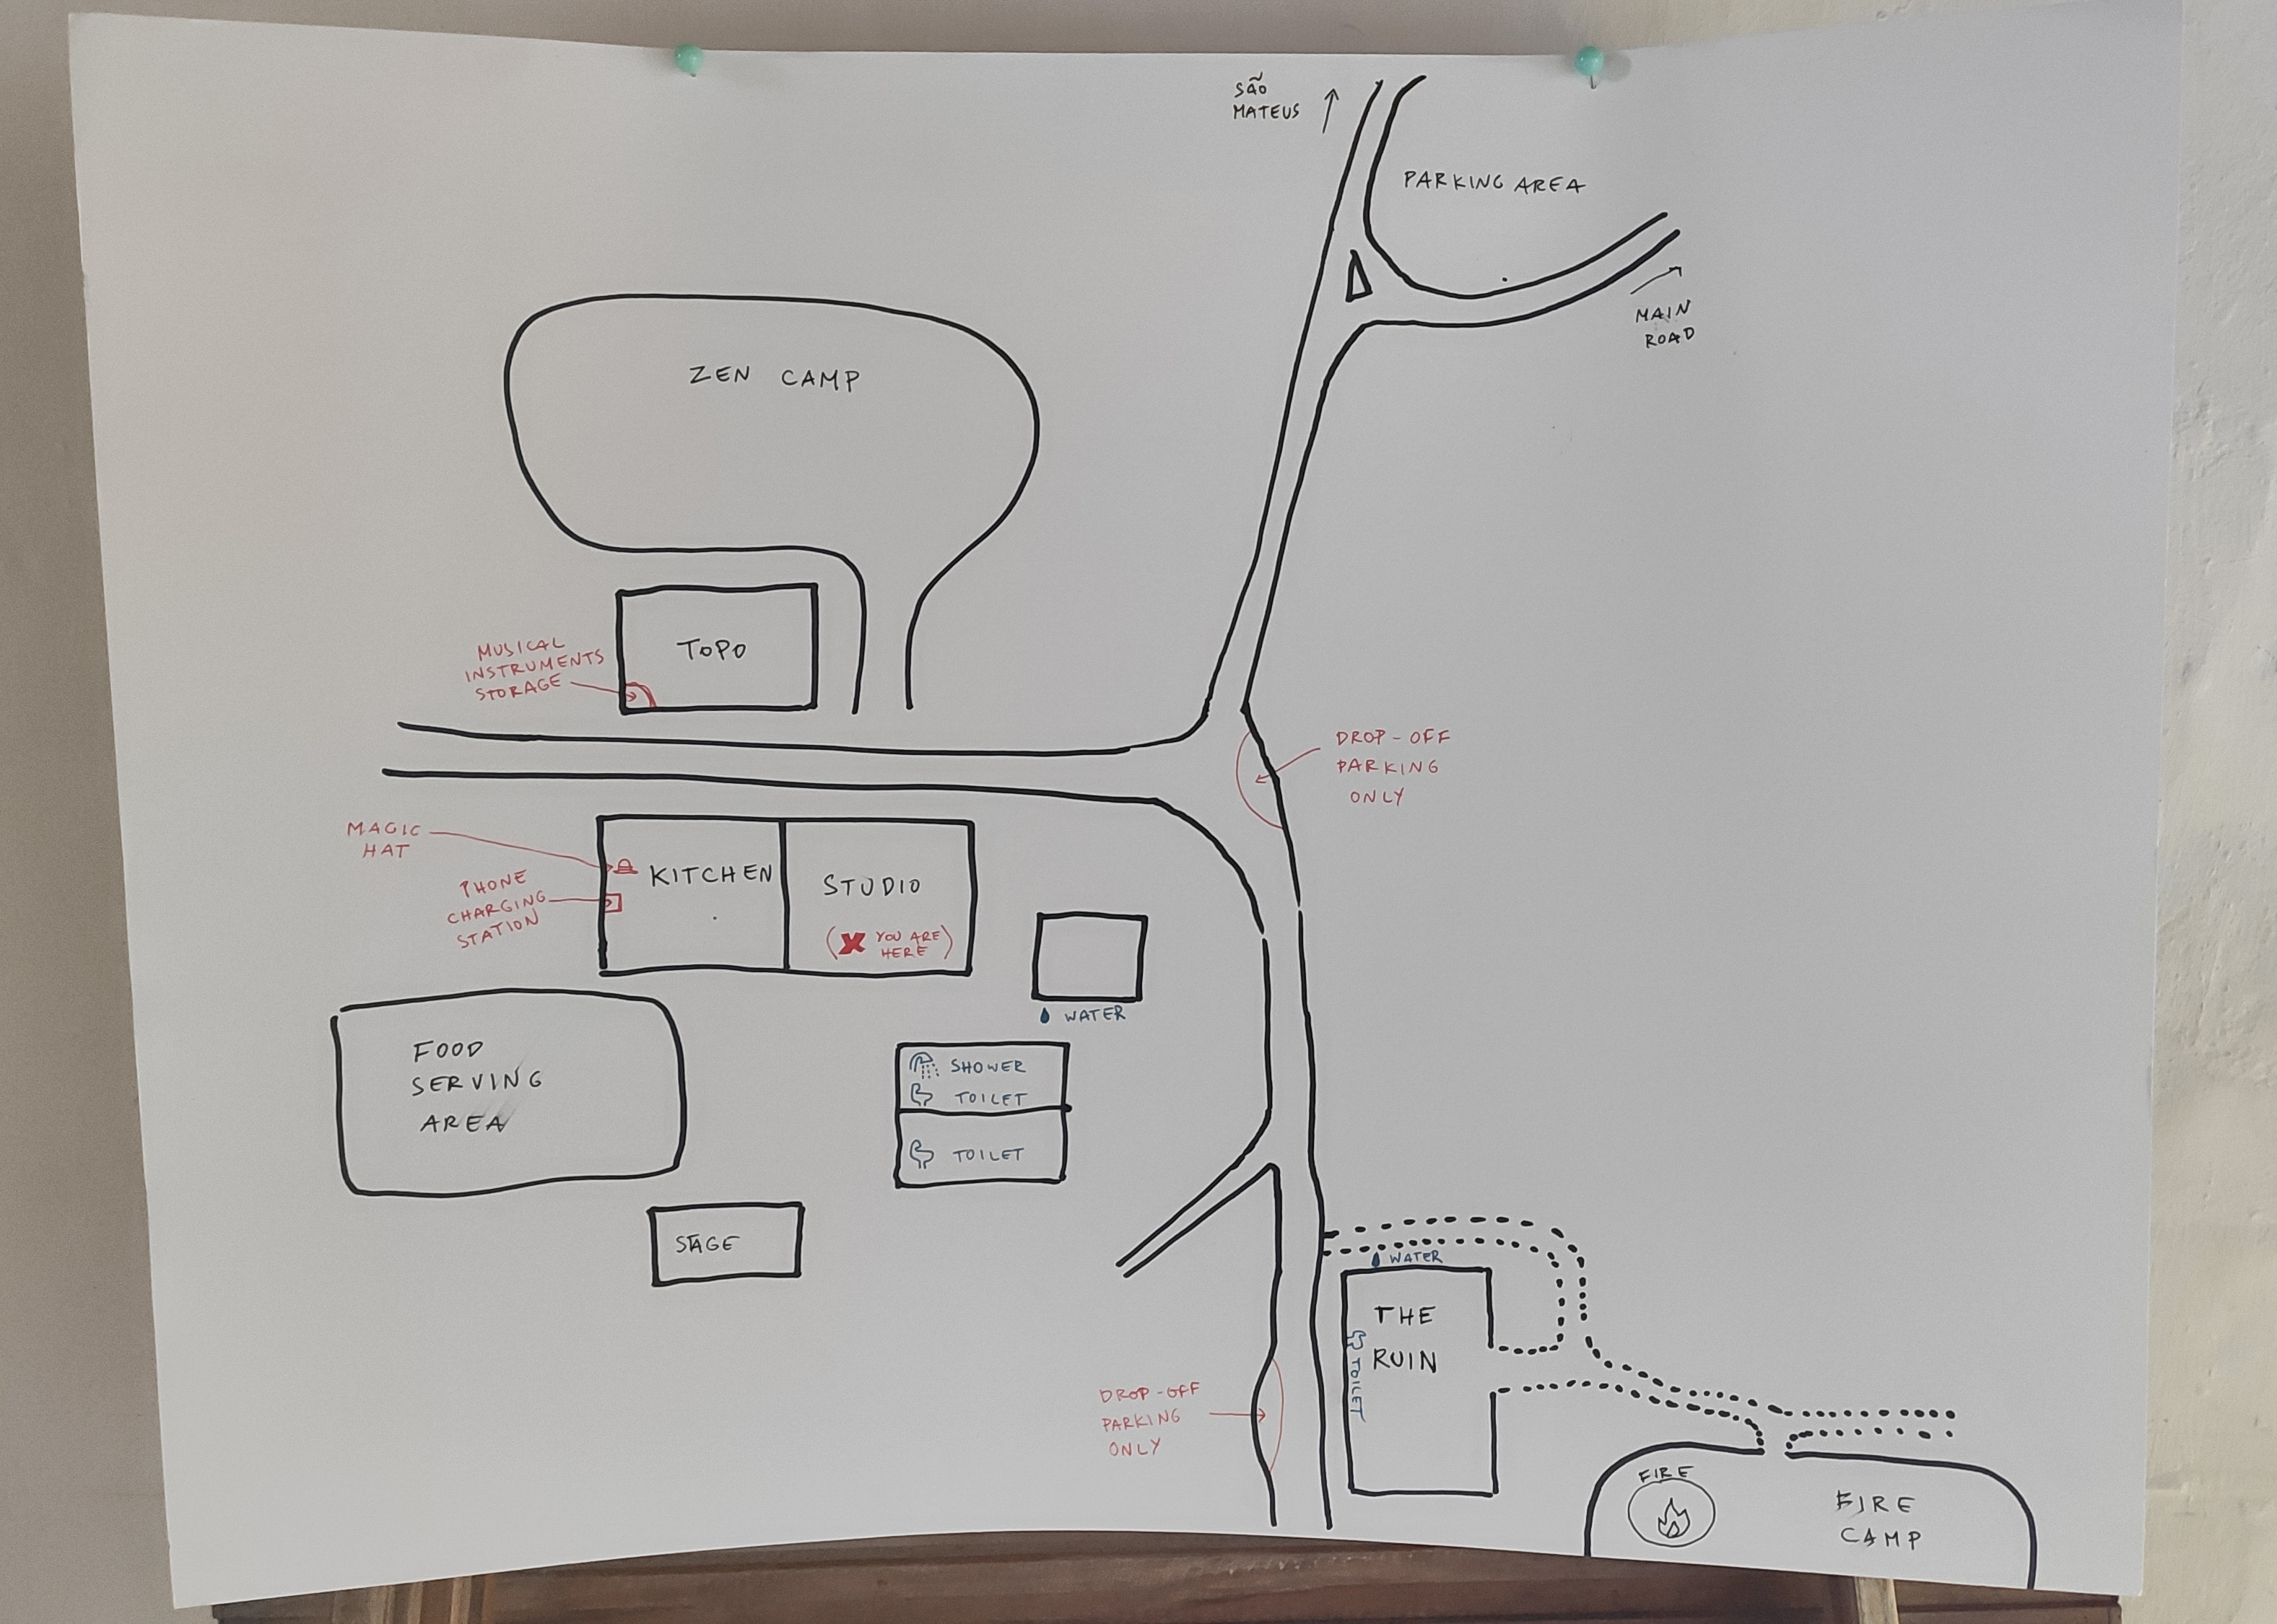 SÃO
MATEUS
PARKING AREA
MAIN
ROAD
ZEN CAMP
TOPO
MUSICAL
INSTRUMENTS
STORAGE
DROP-OFF
PARKING
ONLY
MAGIC
HAT
PHONE
CHARGING
STATION
KITCHEN
STUDIO
(X YOU ARE
HERE)
WATER
FOOD
SERVING
AREA
SHOWER
TOILET
TOILET
STAGE
WATER
THE
RUIN
TOILET
DROP-OFF
PARKING
ONLY
FIRE
FIRE
CAMP